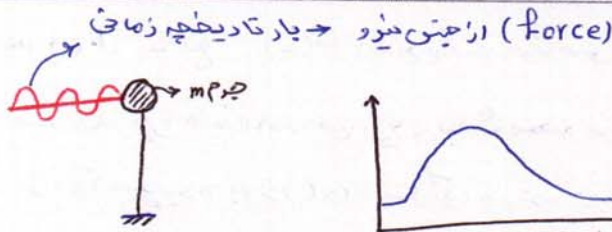 بار تاریخچه زمانی → از جنس نیرو (force)
جرم m